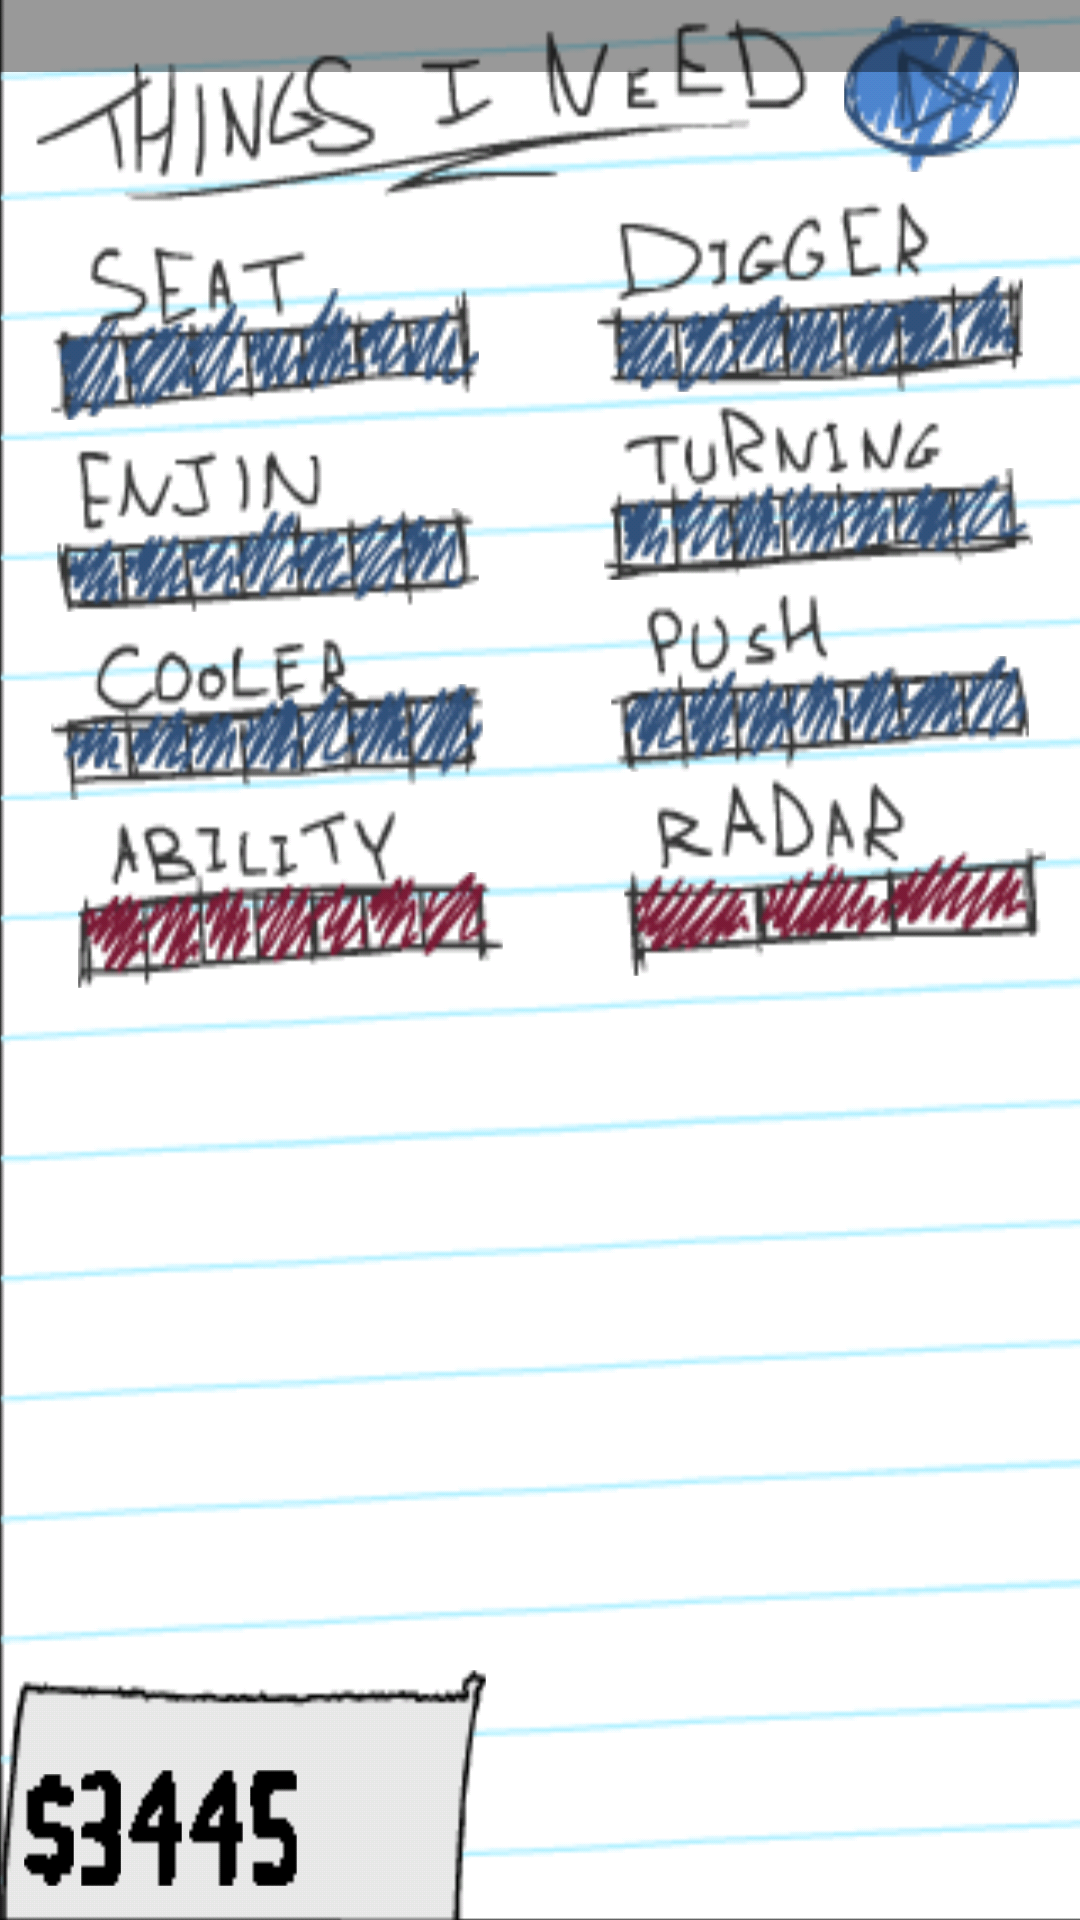 THINGS I NEED
SEAT
DIGGER
ENJIN
TURNING
COOLER
PUSH
ABILITY
RADAR
$3445